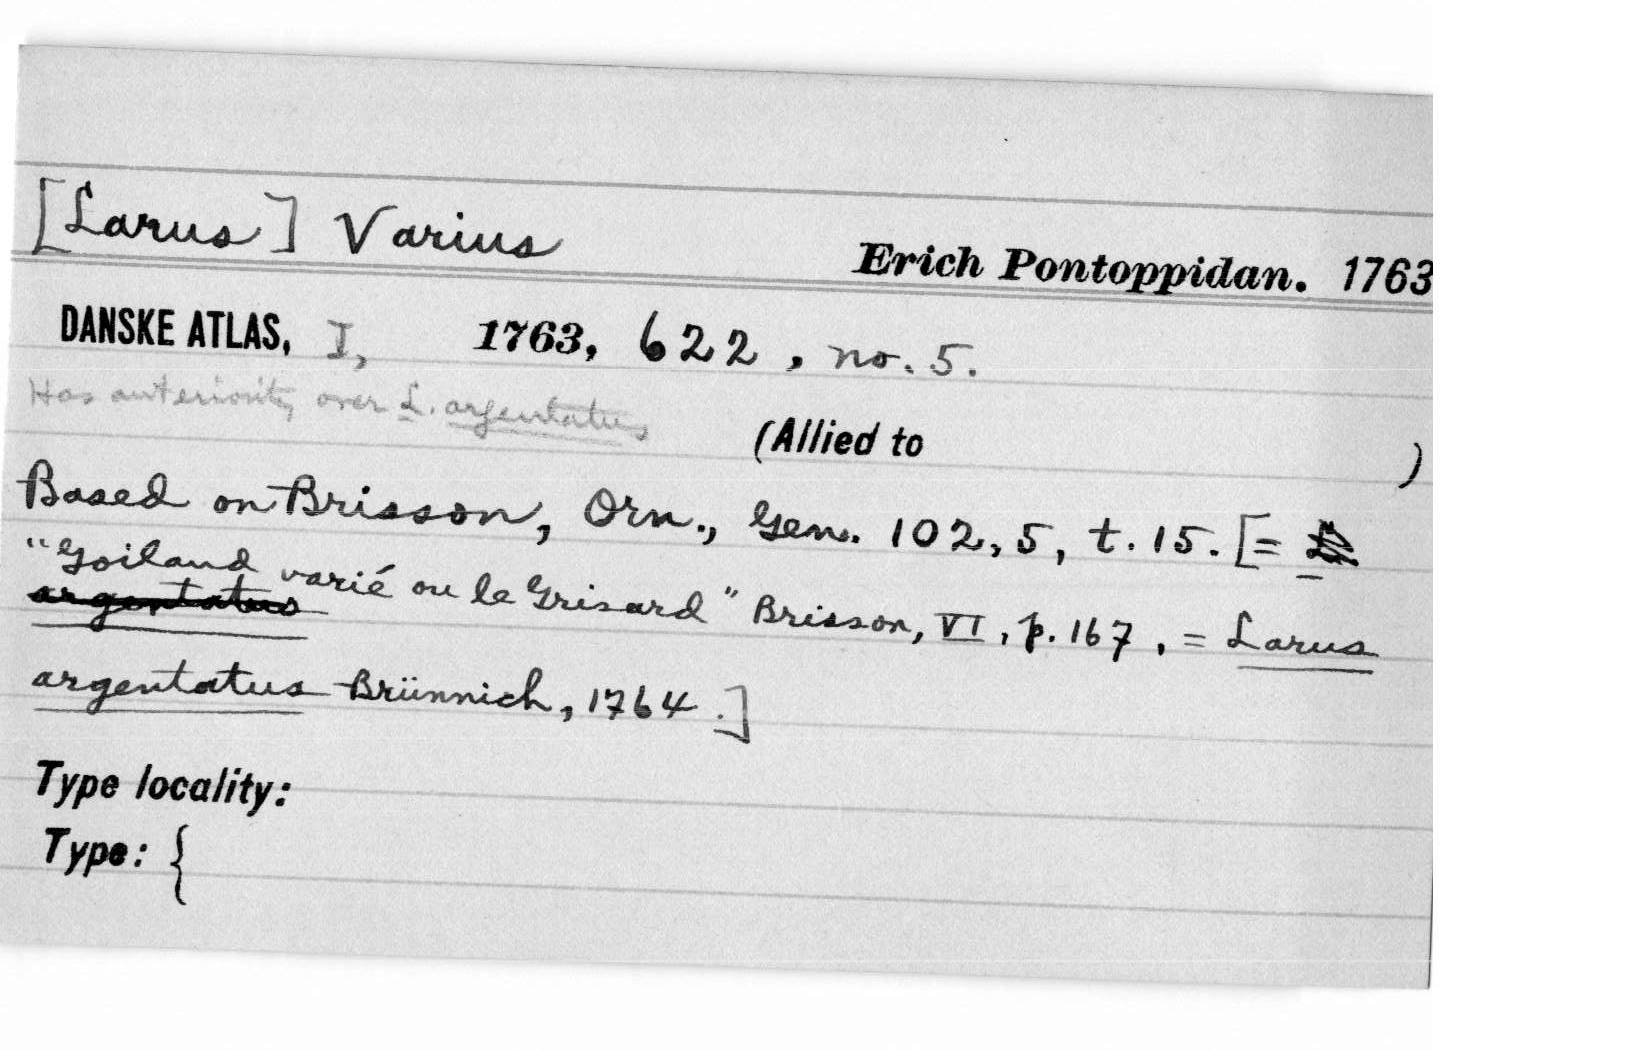 [Larus] Varius
Erich Pontoppidan. 1763
DANSKE ATLAS, I, 1763, 622, no. 5.
Has anteriority over L. argentatus
(Allied to )
Based on Brisson, Orn., Gen. 102, 5, t. 15. [= L.
"Goiland varié ou le Grisard" Brisson, VI, p. 167, = Larus
argentatus
argentatus Brünnich, 1764.]
Type locality:
Type: {